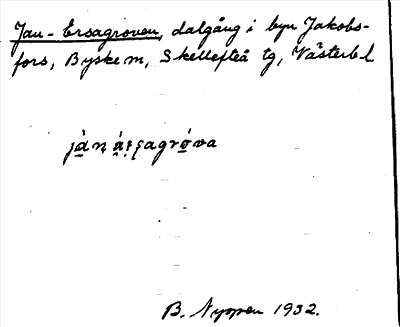 Jan-Ersagroven, dalgång i byn Jakobs-
fors, Byske sn, Skellefteå tg, Västerb. l.
B. Nyppen 1932.